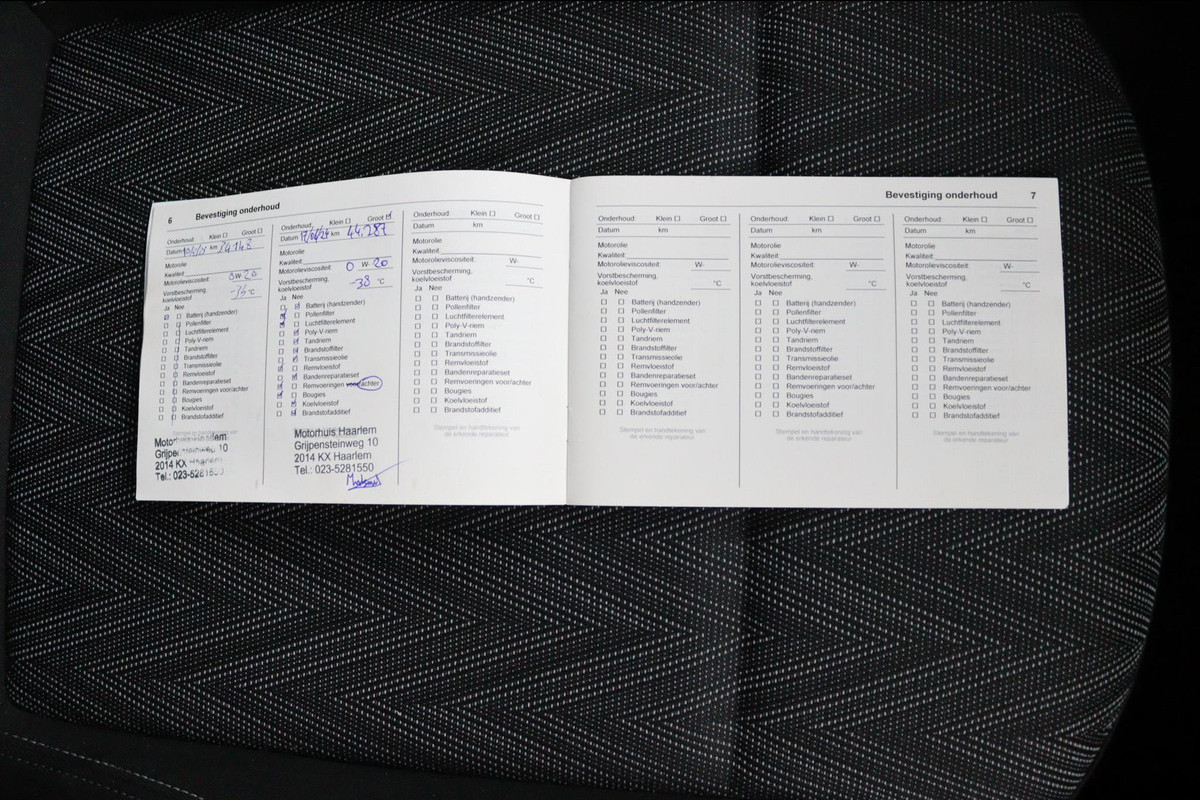 6 Bevestiging onderhoud
Onderhoud: Klein ☐ Groot ☐
Datum km
Motorolie
Kwaliteit
Motorolieviscositeit: 0 W- 20
Vorstbescherming,
koelvloeistof °C
Ja Nee
Batterij (handzender)
Pollenfilter
Luchtfilterelement
Poly-V-riem
Tandriem
Brandstoffilter
Transmissieolie
Remvloeistof
Bandenreparatieset
Remvoeringen voor/achter
Bougies
Koelvloeistof
Brandstofadditief
Stempel en handtekening van
Grijpensteinweg 10
2014 KX Haarlem
Tel.: 023-5281550
Onderhoud: Klein ☐ Groot ☑
Datum km 44.287
Motorolie
Kwaliteit
Motorolieviscositeit: 0 W- 20
Vorstbescherming,
koelvloeistof -38 °C
Ja Nee
Batterij (handzender)
Pollenfilter
Luchtfilterelement
Poly-V-riem
Tandriem
Brandstoffilter
Transmissieolie
Remvloeistof
Bandenreparatieset
Remvoeringen voor/achter
Bougies
Koelvloeistof
Brandstofadditief
Motorhuis Haarlem
Grijpensteinweg 10
2014 KX Haarlem
Tel.: 023-5281550
Onderhoud: Klein ☐ Groot ☐
Datum km
Motorolie
Kwaliteit
Motorolieviscositeit: W-
Vorstbescherming,
koelvloeistof °C
Ja Nee
☐ ☐ Batterij (handzender)
☐ ☐ Pollenfilter
☐ ☐ Luchtfilterelement
☐ ☐ Poly-V-riem
☐ ☐ Tandriem
☐ ☐ Brandstoffilter
☐ ☐ Transmissieolie
☐ ☐ Remvloeistof
☐ ☐ Bandenreparatieset
☐ ☐ Remvoeringen voor/achter
☐ ☐ Bougies
☐ ☐ Koelvloeistof
☐ ☐ Brandstofadditief
Stempel en handtekening van
de erkende reparateur
Bevestiging onderhoud 7
Onderhoud: Klein ☐ Groot ☐
Datum km
Motorolie
Kwaliteit
Motorolieviscositeit: W-
Vorstbescherming,
koelvloeistof °C
Ja Nee
☐ ☐ Batterij (handzender)
☐ ☐ Pollenfilter
☐ ☐ Luchtfilterelement
☐ ☐ Poly-V-riem
☐ ☐ Tandriem
☐ ☐ Brandstoffilter
☐ ☐ Transmissieolie
☐ ☐ Remvloeistof
☐ ☐ Bandenreparatieset
☐ ☐ Remvoeringen voor/achter
☐ ☐ Bougies
☐ ☐ Koelvloeistof
☐ ☐ Brandstofadditief
Stempel en handtekening van
de erkende reparateur
Onderhoud: Klein ☐ Groot ☐
Datum km
Motorolie
Kwaliteit
Motorolieviscositeit: W-
Vorstbescherming,
koelvloeistof °C
Ja Nee
☐ ☐ Batterij (handzender)
☐ ☐ Pollenfilter
☐ ☐ Luchtfilterelement
☐ ☐ Poly-V-riem
☐ ☐ Tandriem
☐ ☐ Brandstoffilter
☐ ☐ Transmissieolie
☐ ☐ Remvloeistof
☐ ☐ Bandenreparatieset
☐ ☐ Remvoeringen voor/achter
☐ ☐ Bougies
☐ ☐ Koelvloeistof
☐ ☐ Brandstofadditief
Stempel en handtekening van
de erkende reparateur
Onderhoud: Klein ☐ Groot ☐
Datum km
Motorolie
Kwaliteit
Motorolieviscositeit: W-
Vorstbescherming,
koelvloeistof °C
Ja Nee
☐ ☐ Batterij (handzender)
☐ ☐ Pollenfilter
☐ ☐ Luchtfilterelement
☐ ☐ Poly-V-riem
☐ ☐ Tandriem
☐ ☐ Brandstoffilter
☐ ☐ Transmissieolie
☐ ☐ Remvloeistof
☐ ☐ Bandenreparatieset
☐ ☐ Remvoeringen voor/achter
☐ ☐ Bougies
☐ ☐ Koelvloeistof
☐ ☐ Brandstofadditief
Stempel en handtekening van
de erkende reparateur